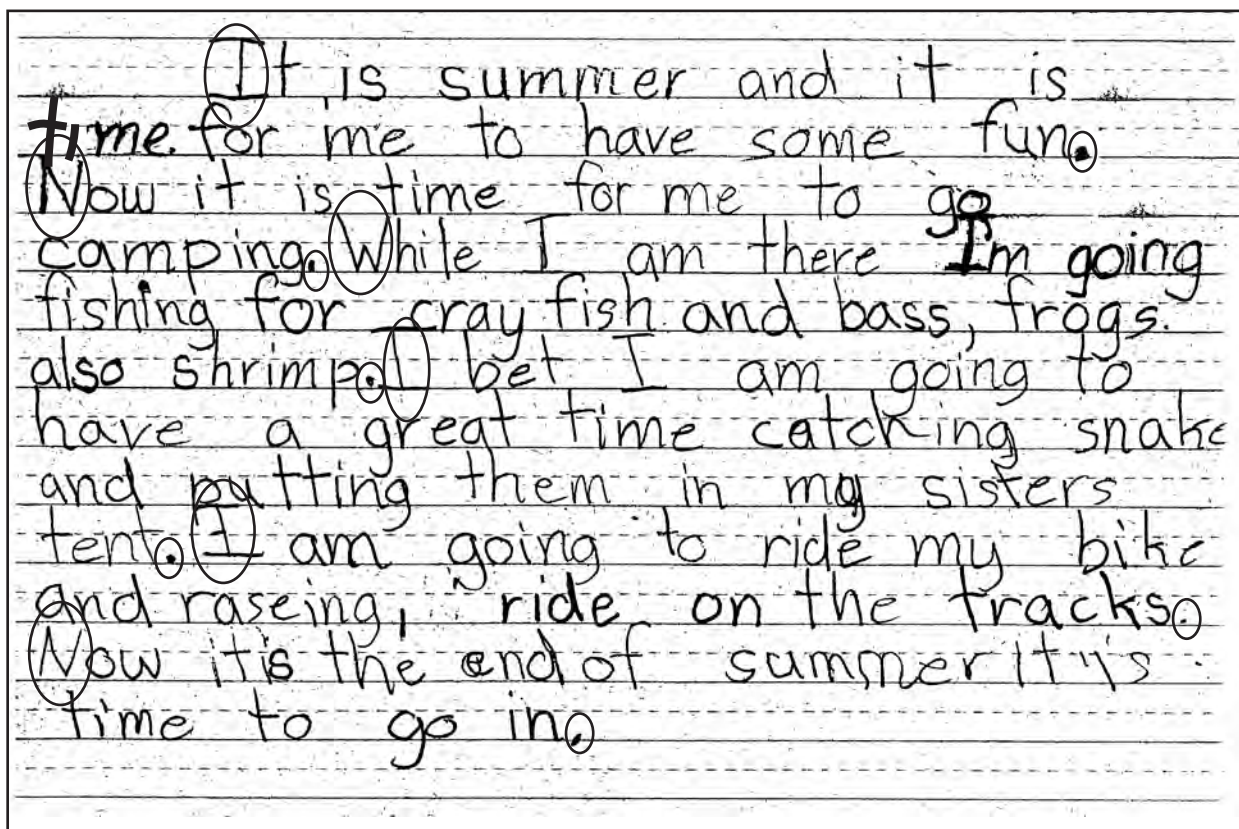 It is summer and it is
time for me to have some fun.
Now it is time for me to go
camping. While I am there Im going
fishing for cray fish and bass, frogs.
also shrimp. I bet I am going to
have a great time catching snake
and putting them in my sisters
tent. I am going to ride my bike
and raseing, ride on the tracks.
Now it is the end of summer It is
time to go in.